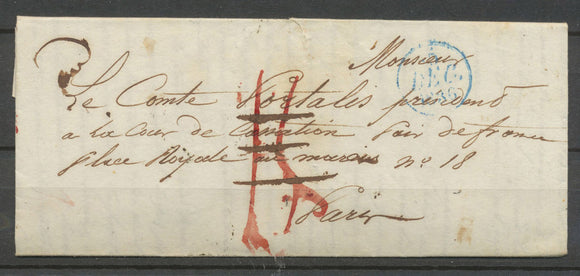 Monsieur
Le Comte Portalis president
a la Cour de Cassation Pair de france
place Royale au marais n° 18
Paris
DEC.